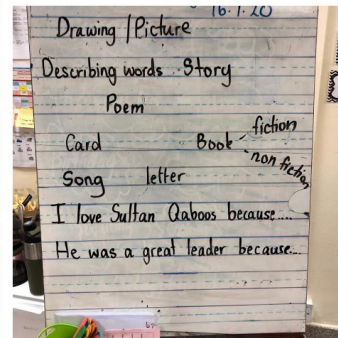 16.1.20
Drawing / Picture
Describing words Story
Poem
Card Book fiction
non fiction
Song letter
I love Sultan Qaboos because....
He was a great leader because...